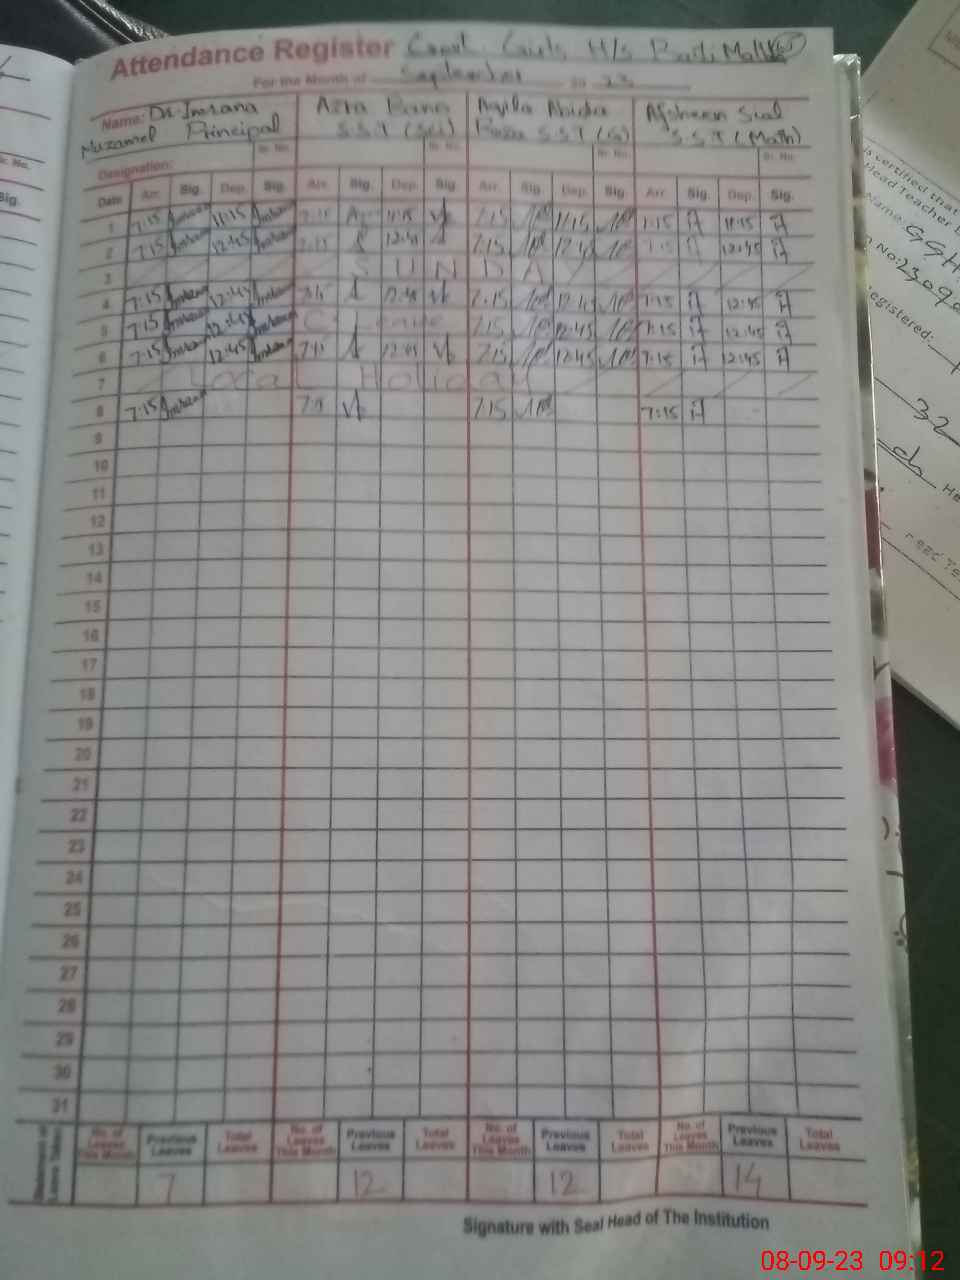 Attendance Register Govt. Girls H/S
For the Month of September 20 23
Name: Dr. Imrana Azra Bano Aqila Abida Afsheen Sial
Muzamel Principal S.S.T (Sci) S.S.T (G) S.S.T (Math)
Sr. No. Sr. No. Sr. No. Sr. No.
Designation:
Date Arr. Sig. Dep. Sig. Arr. Sig. Dep. Sig. Arr. Sig. Dep. Sig. Arr. Sig. Dep. Sig.
1 7:15 Imrana 11:15 Imrana 7:15 11:15 7:15 11:15 7:15 11:15
2 7:15 Imrana 12:45 Imrana 7:15 12:45 7:15 12:45 7:15 12:45
3 SUNDAY
4 7:15 Imrana 12:45 Imrana 7:15 12:45 7:15 12:45 7:15 12:45
5 7:15 Imrana 12:45 Imrana C. Leave 7:15 12:45 7:15 12:45
6 7:15 Imrana 12:45 Imrana 7:15 12:45 7:15 12:45 7:15 12:45
7 Local Holiday
8 7:15 Imrana 7:15 7:15 7:15
9
10
11
12
13
14
15
16
17
18
19
20
21
22
23
24
25
26
27
28
29
30
31
No. of Leaves This Month Previous Leaves Total Leaves No. of Leaves This Month Previous Leaves Total Leaves No. of Leaves This Month Previous Leaves Total Leaves No. of Leaves This Month Previous Leaves Total Leaves
7 12 12 14
Signature with Seal Head of The Institution
is certified that
Head Teacher
Name: GGH
No:
egistered:
32
08-09-23 09:12